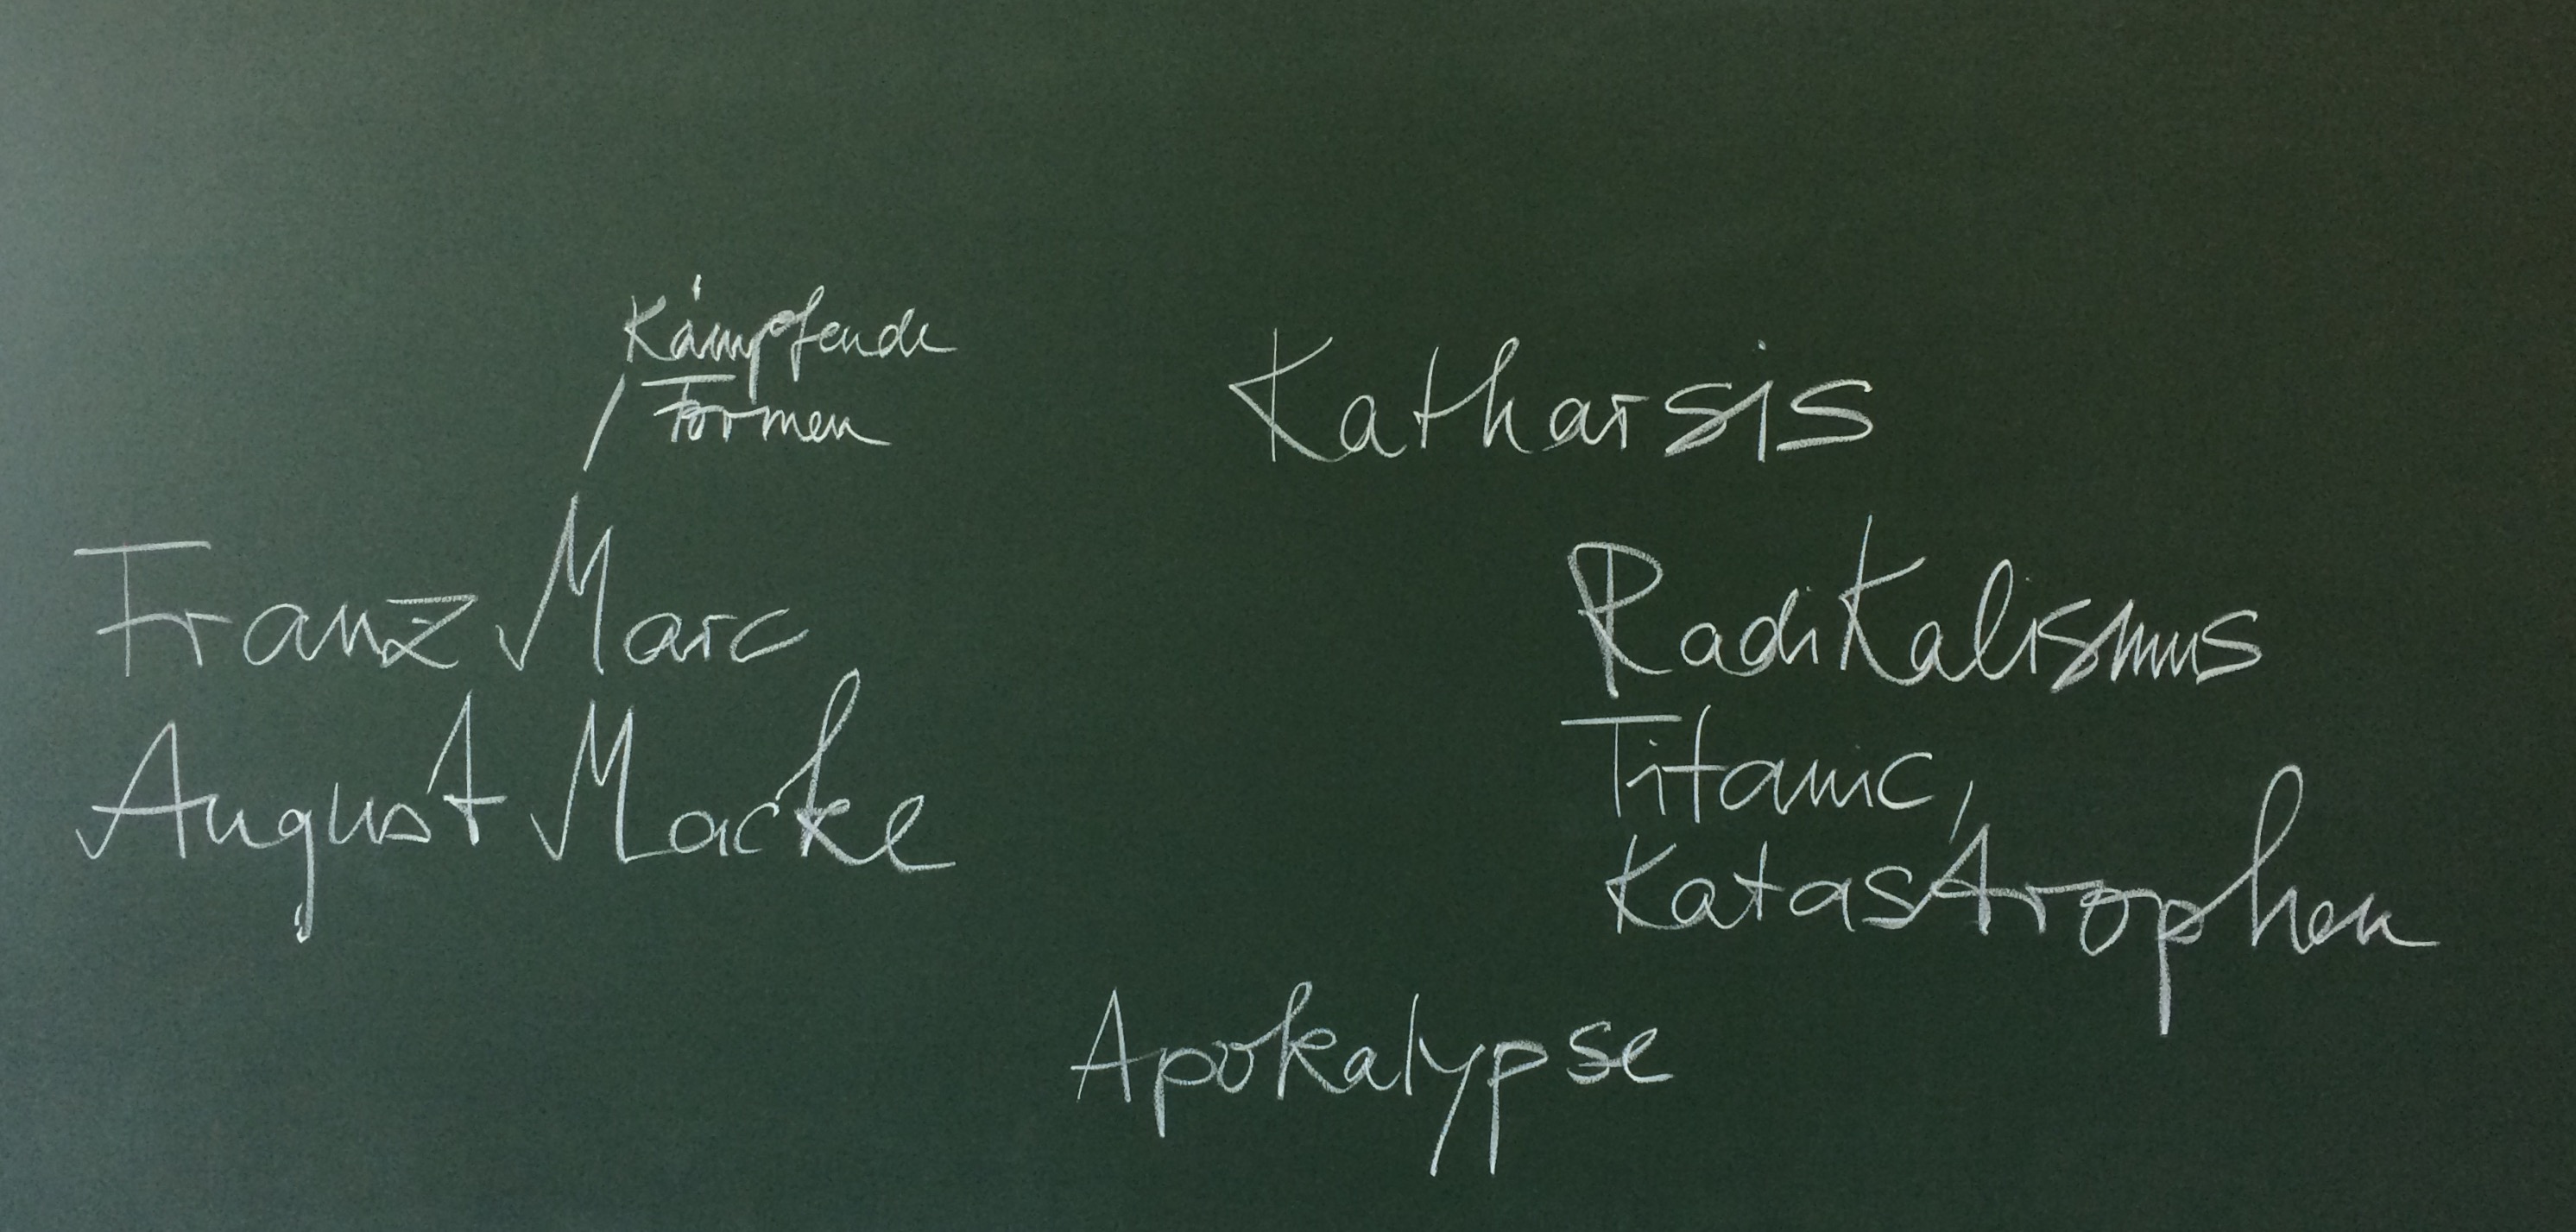 Kämpfende
Formen
Franz Marc
August Macke
Katharsis
Radikalismus
Titanic,
Katastrophen
Apokalypse